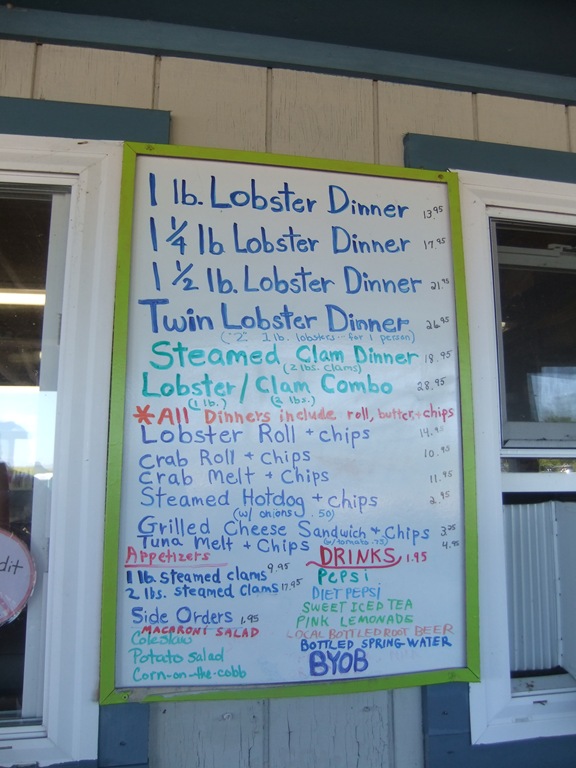 1 lb. Lobster Dinner 13.95
1 1/4 lb Lobster Dinner 17.95
1 1/2 lb. Lobster Dinner 21.95
Twin Lobster Dinner 26.95
("2" 1 lb. lobsters... for 1 person)
Steamed Clam Dinner 18.95
(2 lbs. clams)
Lobster/Clam Combo 28.95
(1 lb.) (2 lbs.)
*All Dinners include roll, butter + chips
Lobster Roll + chips 14.95
Crab Roll + Chips 10.95
Crab Melt + Chips 11.95
Steamed Hotdog + chips 2.95
(w/ onions .50)
Grilled Cheese Sandwich + Chips 3.25
Tuna Melt + Chips (w/ tomato .75) 4.95
Appetizers
1 lb. steamed clams 9.95
2 lbs. steamed clams 17.95
Side Orders 1.95
MACARONI SALAD
Coleslaw
Potato salad
Corn-on-the-cobb
DRINKS 1.95
PEPSI
DIET PEPSI
SWEET ICED TEA
PINK LEMONADE
LOCAL BOTTLED ROOT BEER
BOTTLED SPRING-WATER
BYOB
dit